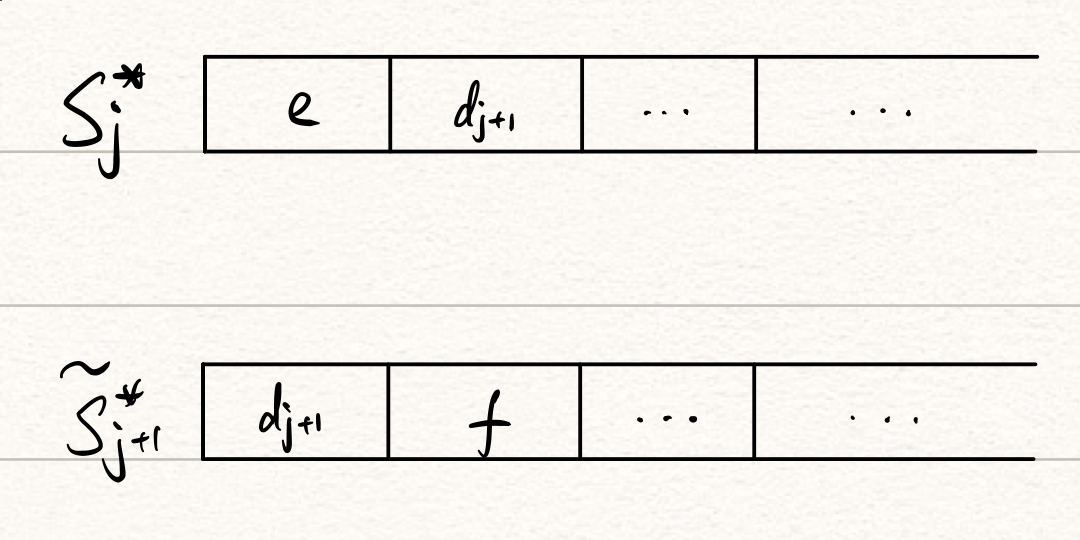 S_j^* e d_{j+1} ... ...
\tilde{S}_{j+1}^* d_{j+1} f ... ...